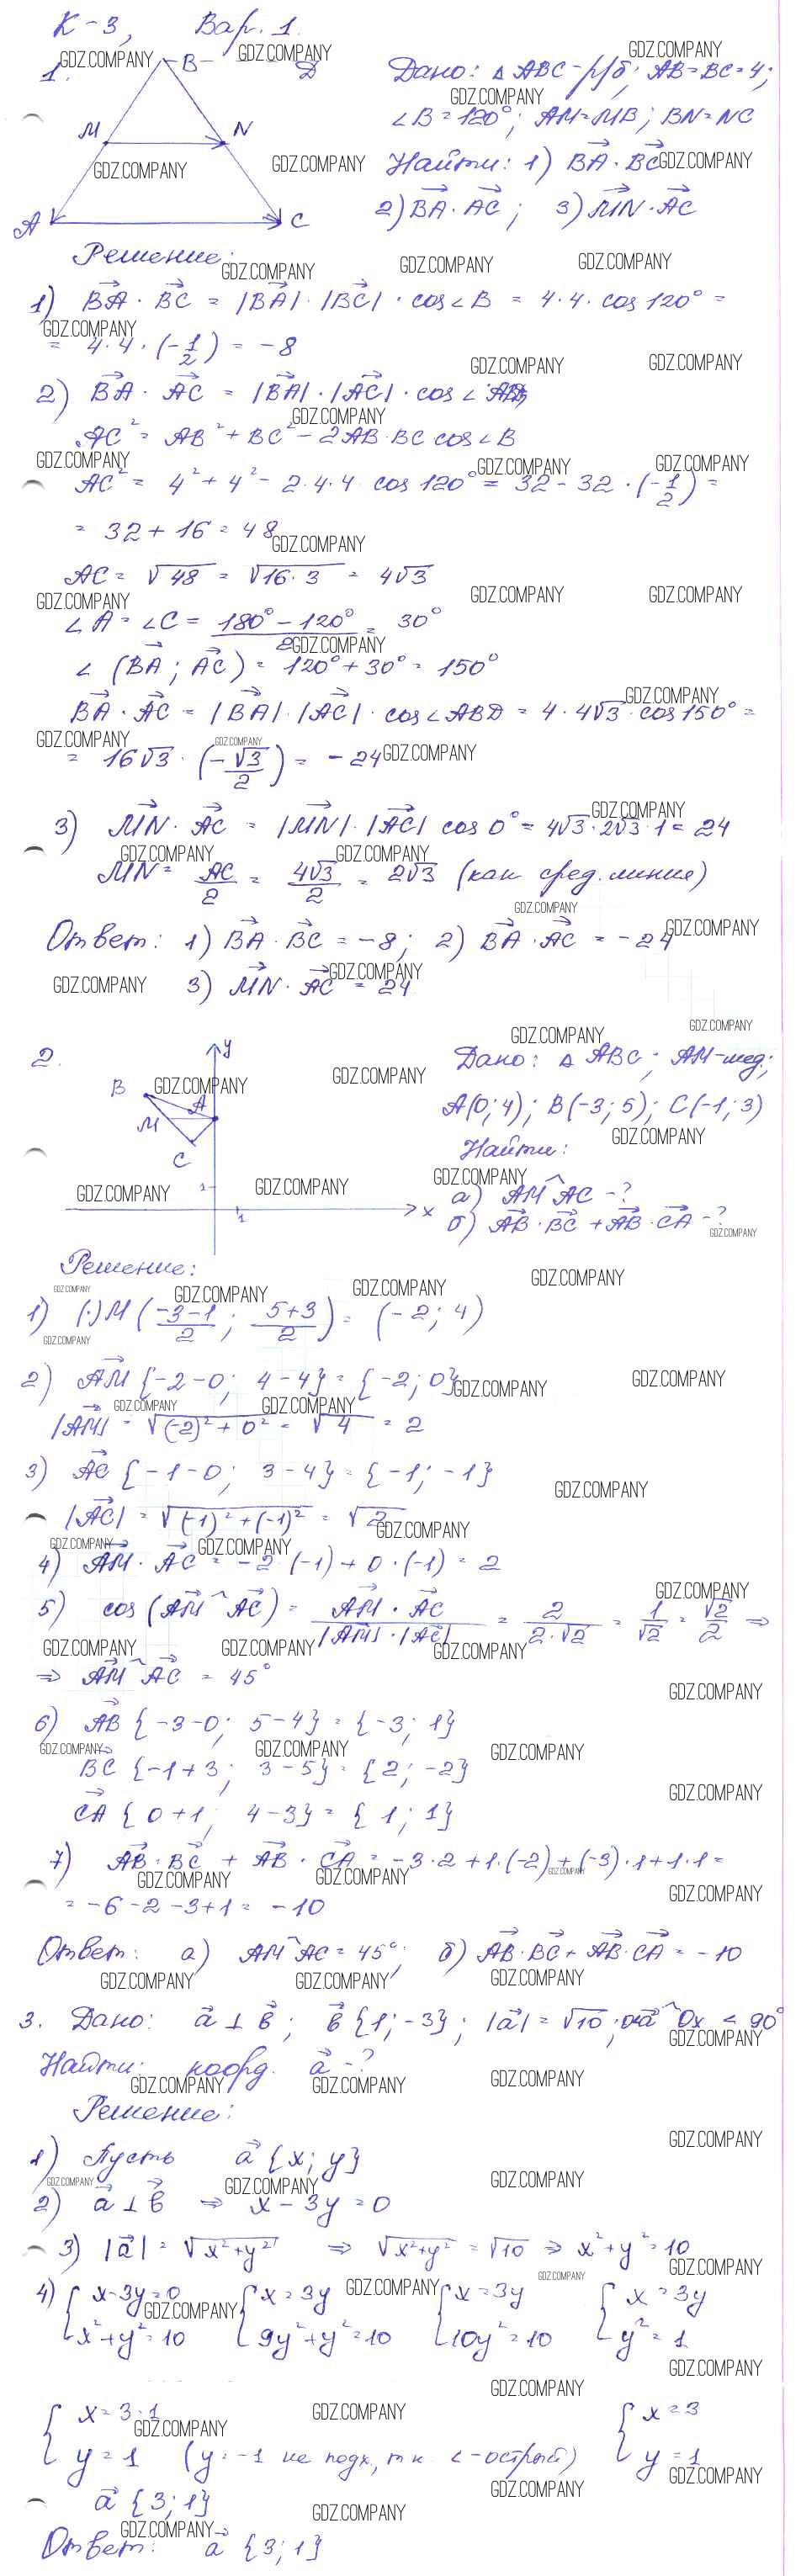 К-3, Вар. 1.
1. B D
M N
A C
Дано: △ ABC - р/б; AB=BC=4;
∠B = 120°; AM=MB; BN=NC
Найти: 1) BA · BC
2) BA · AC; 3) MN · AC
Решение:
1) BA · BC = |BA| · |BC| · cos∠B = 4·4· cos 120° =
= 4·4·(-1/2) = -8
2) BA · AC = |BA| · |AC| · cos∠ABD
AC² = AB² + BC² - 2AB·BC cos∠B
AC² = 4² + 4² - 2·4·4 cos 120° = 32 - 32 · (-1/2) =
= 32 + 16 = 48
AC = √48 = √16·3 = 4√3
∠A = ∠C = (180° - 120°)/2 = 30°
∠(BA; AC) = 120° + 30° = 150°
BA · AC = |BA| · |AC| · cos∠ABD = 4 · 4√3 · cos 150° =
= 16√3 · (-√3/2) = -24
3) MN · AC = |MN| · |AC| cos 0° = 4√3 · 2√3 · 1 = 24
MN = AC/2 = 4√3/2 = 2√3 (как сред. линия)
Ответ: 1) BA · BC = -8; 2) BA · AC = -24
3) MN · AC = 24
2. y
B A
M
C
1
x
1
Дано: △ ABC; AM-мед.;
A(0; 4); B(-3; 5); C(-1; 3)
Найти:
а) AM^AC -?
б) AB · BC + AB · CA -?
Решение:
1) (·)M ((-3-1)/2; (5+3)/2) = (-2; 4)
2) AM {-2-0; 4-4} = {-2; 0}
|AM| = √(-2)² + 0² = √4 = 2
3) AC {-1-0; 3-4} = {-1; -1}
|AC| = √(-1)² + (-1)² = √2
4) AM · AC = -2 · (-1) + 0 · (-1) = 2
5) cos (AM ^ AC) = (AM · AC)/(|AM| · |AC|) = 2/(2·√2) = 1/√2 = √2/2 ⇒
⇒ AM ^ AC = 45°
6) AB {-3-0; 5-4} = {-3; 1}
BC {-1+3; 3-5} = {2; -2}
CA {0+1; 4-3} = {1; 1}
7) AB · BC + AB · CA = -3·2 + 1·(-2) + (-3)·1 + 1·1 =
= -6 - 2 - 3 + 1 = -10
Ответ: а) AM^AC = 45°; б) AB · BC + AB · CA = -10
3. Дано: a ⊥ b; b {1; -3}; |a| = √10; a^Ox < 90°
Найти: коорд. a -?
Решение:
1) Пусть a {x; y}
2) a ⊥ b ⇒ x - 3y = 0
3) |a| = √x²+y² ⇒ √x²+y² = √10 ⇒ x² + y² = 10
4) { x-3y=0 { x=3y { x=3y { x=3y
x²+y²=10 9y²+y²=10 10y²=10 y²=1
{ x=3·1 { x=3
y=1 (y=-1 не подх, т к ∠-острый) y=1
a {3; 1}
Ответ: a {3; 1}
GDZ.COMPANY